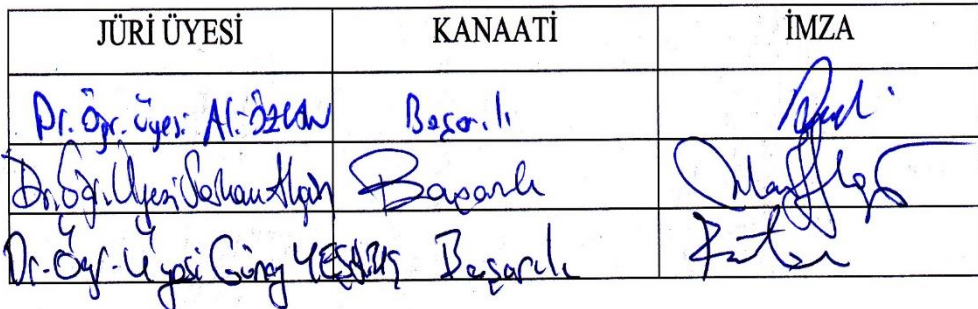 JÜRİ ÜYESİ KANAATİ İMZA
Dr. Öğr. Üyesi Ali ÖZKAN Başarılı
Dr. Öğr. Üyesi Başarılı
Dr. Öğr. Üyesi Güney Başarılı